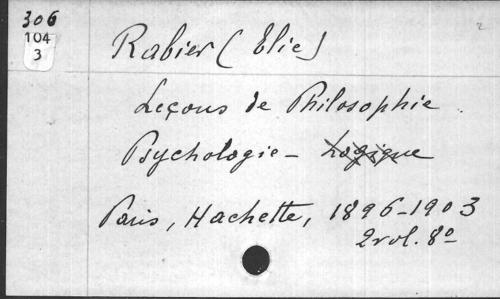 306
104
3
Rabier (Elie)
2
Leçons de Philosophie
Psychologie - Logique
Paris, Hachette, 1896-1903
2 vol. 8º